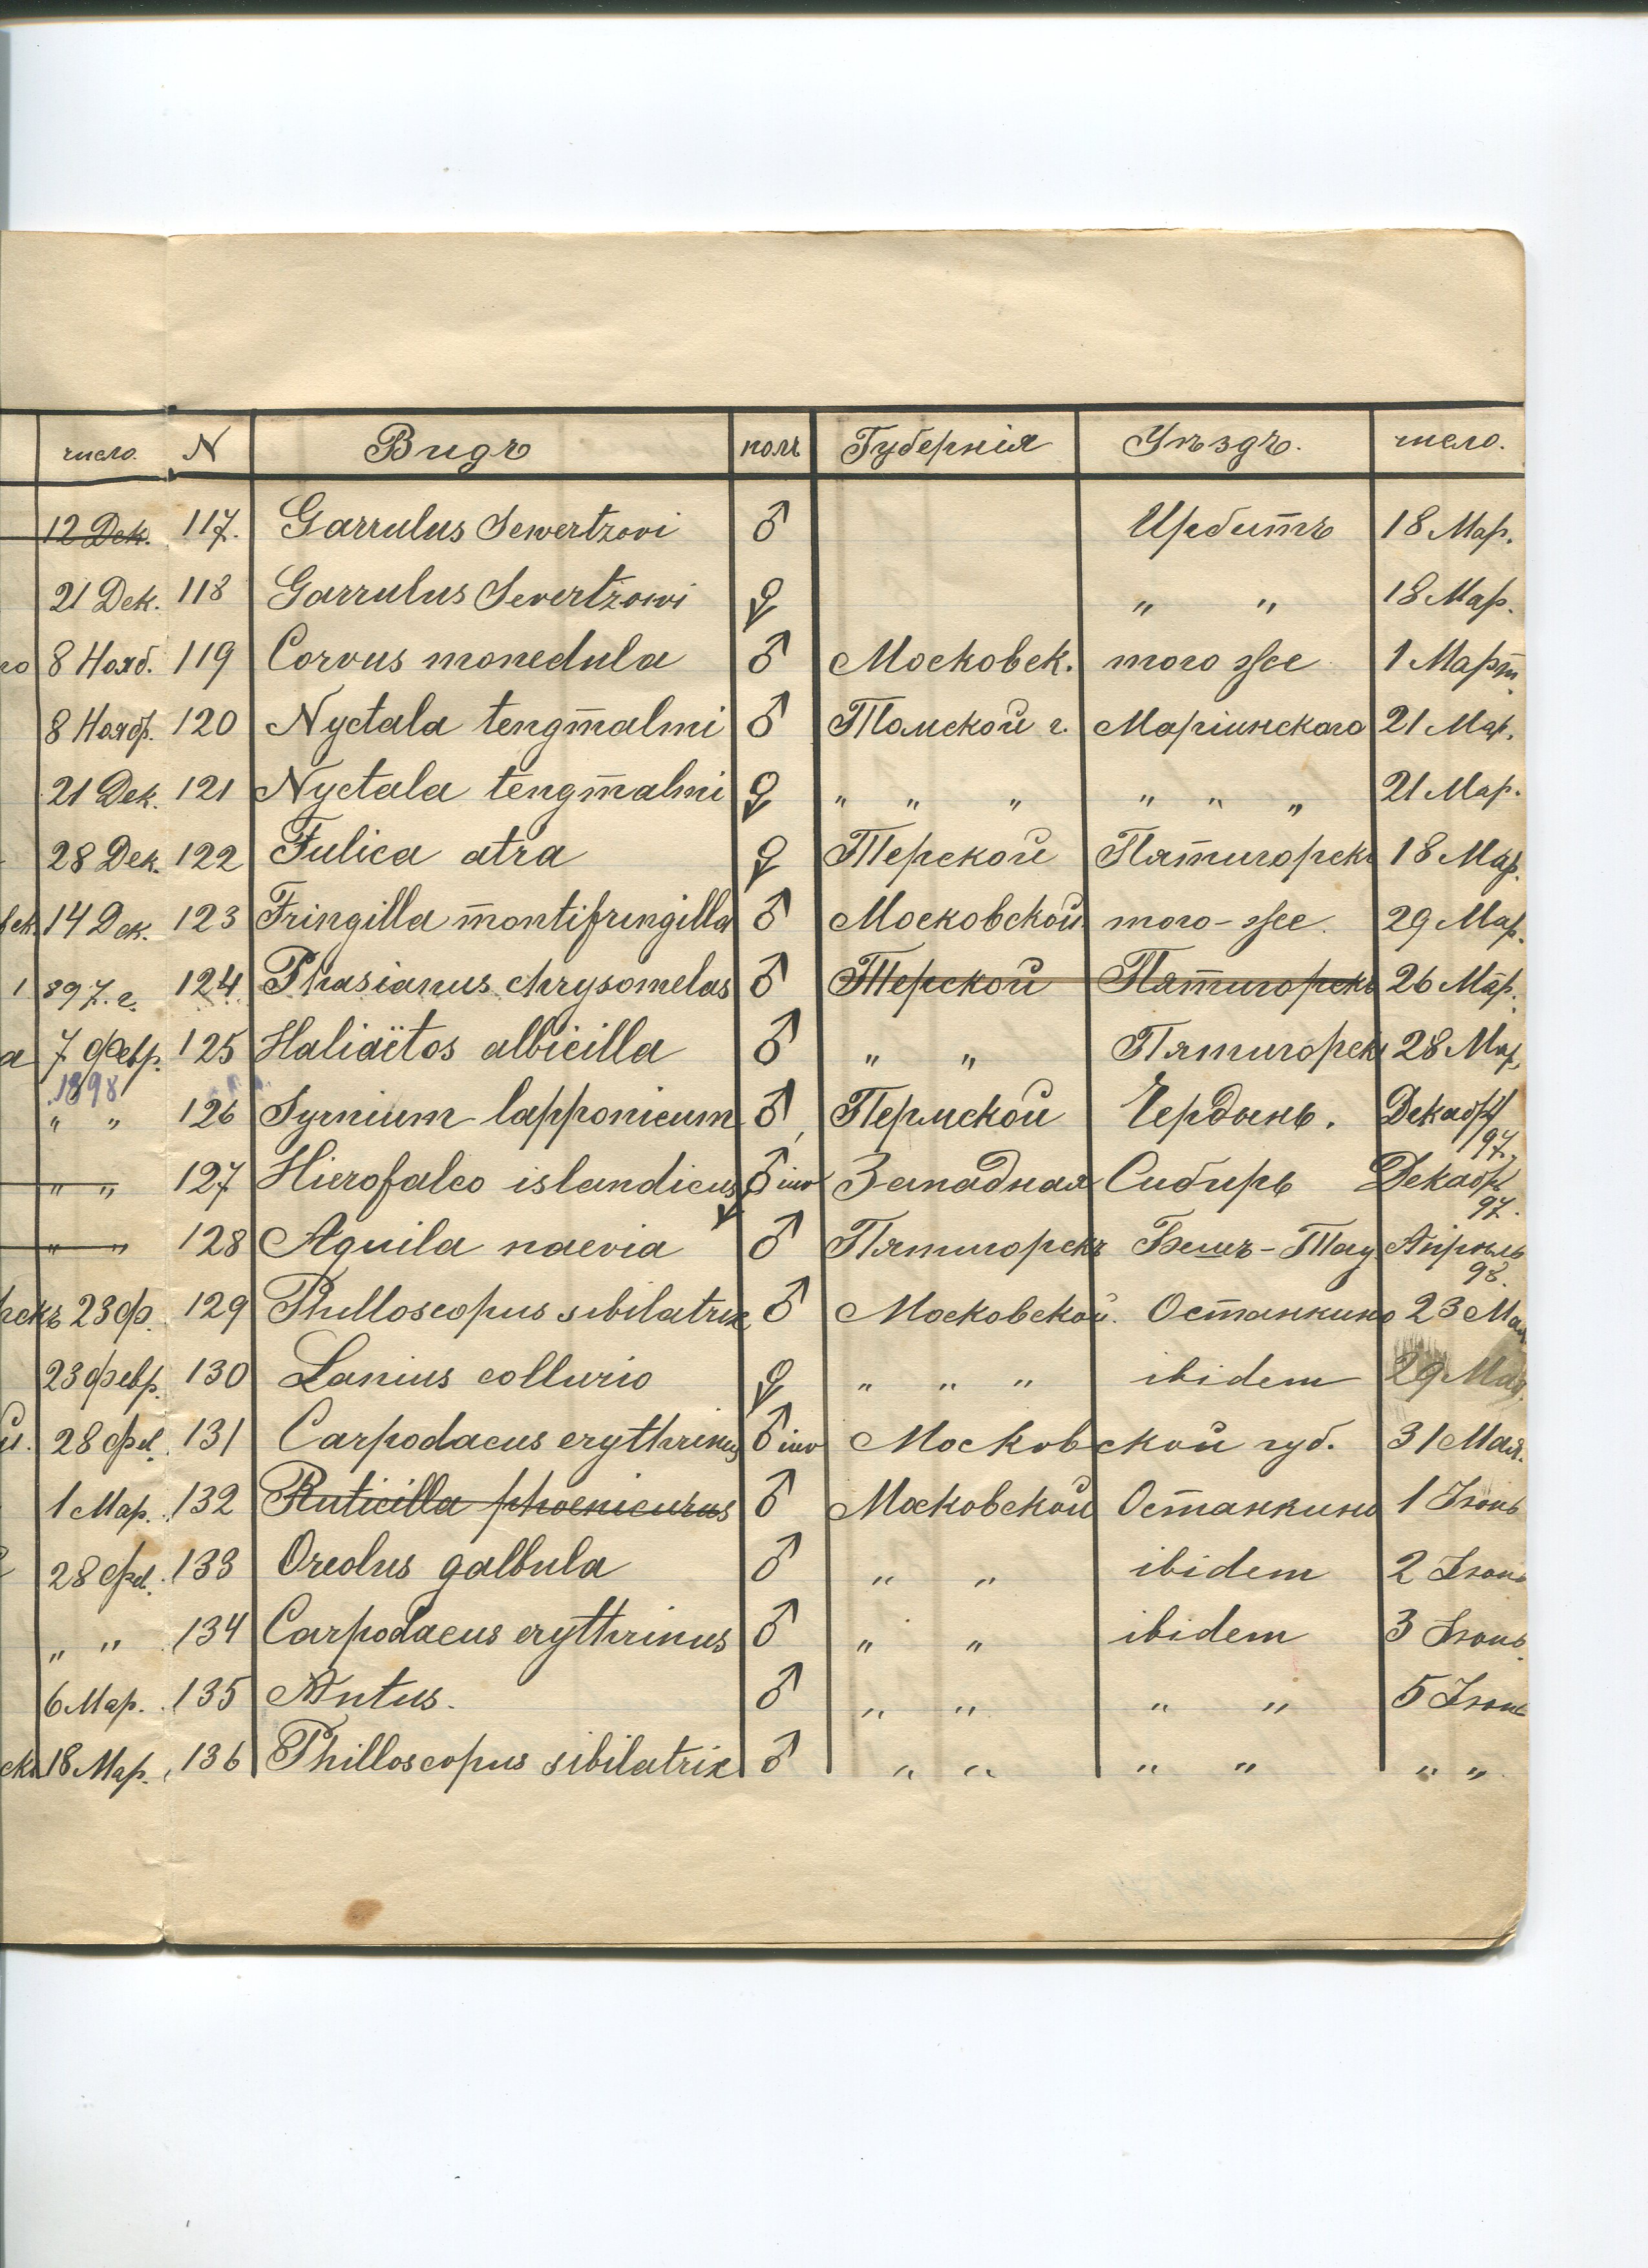 число. N Видъ полъ Губернія Уѣздъ. число.
12 Дек. 117. Garrulus Sewertzovi ♂ Ирбитъ 18 Мар.
21 Дек. 118 Garrulus Severtzowi ♀ " " 18 Мар.
го 8 Нояб. 119 Corvus monedula ♂ Московск. того же 1 Март.
8 Нояб. 120 Nyctala tengmalmi ♂ Томской г. Маріинскаго 21 Мар.
21 Дек. 121 Nyctala tengmalmi ♀ " " " " " " 21 Мар.
28 Дек. 122 Fulica atra ♀ Терской Пятигорскъ 18 Мар.
14 Дек. 123 Fringilla montifringilla ♂ Московской того-же. 29 Мар.
1 897. г. 124 Phasianus chrysomelas ♂ Терской Пятигорскъ 26 Мар.
а 7 Февр. 125 Haliaïtos albicilla ♂ " " Пятигорскъ 28 Мар.
1898
" " 126 Syrnium lapponicum ♂, Пермской Чердынь. Декабр 97.
" " 127 Hierofalco islandicus ♂ iuv Западная Сибирь Декабр 97.
" " 128 Aquila naevia ♂ Пятигорскъ Бешъ-Тау Апрѣль 98.
рскъ 23 Ф. 129 Philloscopus sibilatrix ♂ Московской. Останкино 23 Мая
23 Февр. 130 Lanius collurio ♀ " " " ibidem 29 Мая.
й. 28 Фев. 131 Carpodacus erythrinus ♂ iuv Московской губ. 31 Мая.
1 Мар. 132 Ruticilla phoenicurus ♂ Московской Останкино 1 Іюнь
28 Фев. 133 Oreolus galbula ♂ " " ibidem 2 Іюнь
" " 134 Carpodacus erythrinus ♂ " " ibidem 3 Іюнь.
6 Мар. 135 ♂ " " " " 5 Іюнь
скъ 18 Мар. 136 Philloscopus sibilatrix ♂ " " " " " "